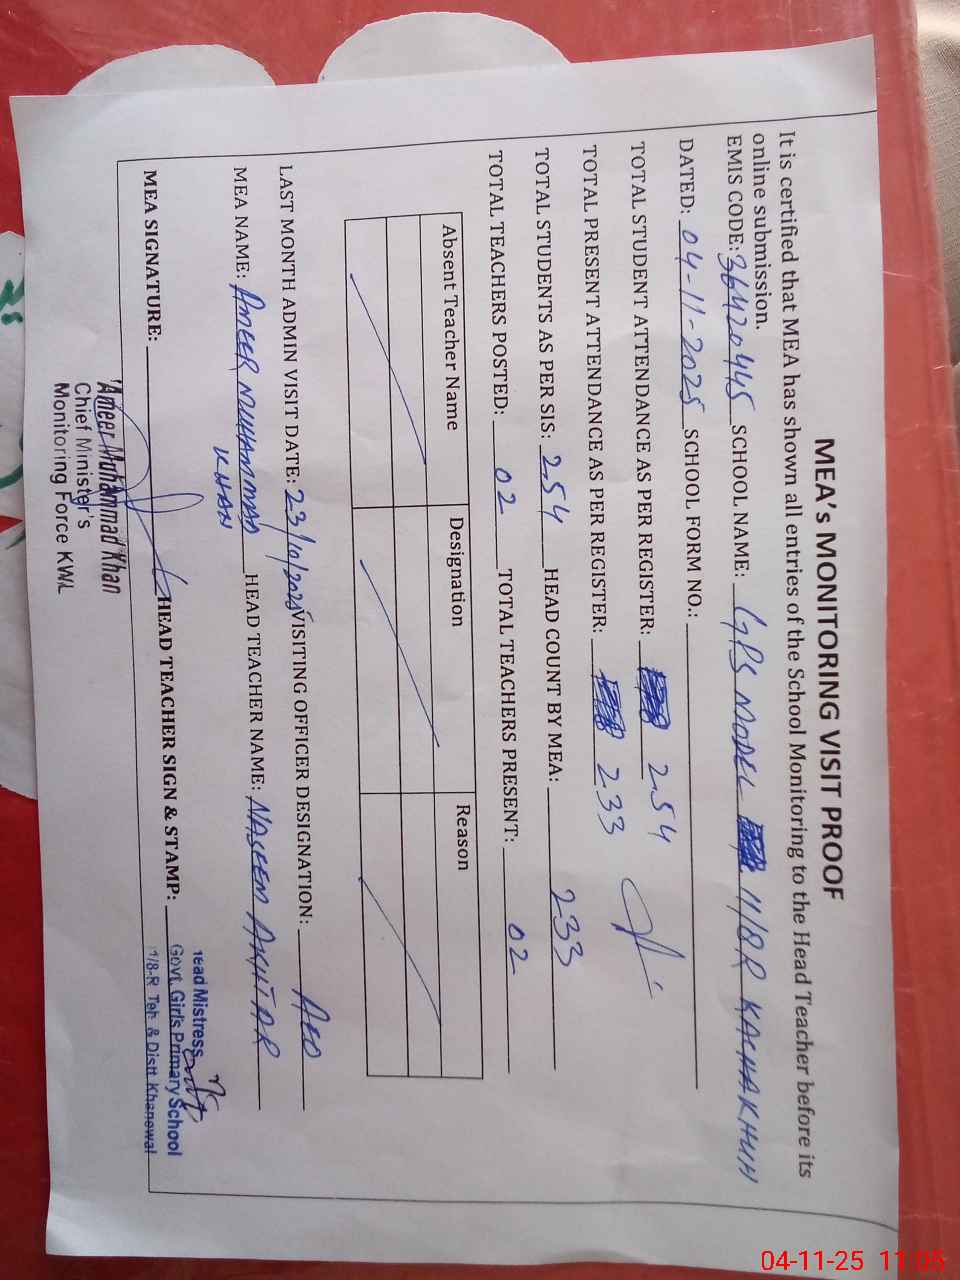 MEA's MONITORING VISIT PROOF
It is certified that MEA has shown all entries of the School Monitoring to the Head Teacher before its
online submission.
EMIS CODE: 36420445 SCHOOL NAME: GPS MODEL 11/8R KACHAKHUH
DATED: 04-11-2025 SCHOOL FORM NO.:
TOTAL STUDENT ATTENDANCE AS PER REGISTER: 254
TOTAL PRESENT ATTENDANCE AS PER REGISTER: 233
TOTAL STUDENTS AS PER SIS: 254 HEAD COUNT BY MEA: 233
TOTAL TEACHERS POSTED: 02 TOTAL TEACHERS PRESENT: 02
Absent Teacher Name Designation Reason
LAST MONTH ADMIN VISIT DATE: 23/10/2025 VISITING OFFICER DESIGNATION: AEO
MEA NAME: AMEER MUHAMMAD KHAN HEAD TEACHER NAME: NASEEM AKHTAR
MEA SIGNATURE: HEAD TEACHER SIGN & STAMP:
Ameer Muhammad Khan
Chief Minister's
Monitoring Force KWL
Head Mistress
Govt. Girls Primary School
11/8-R Teh. & Distt Khanewal
04-11-25 11:05